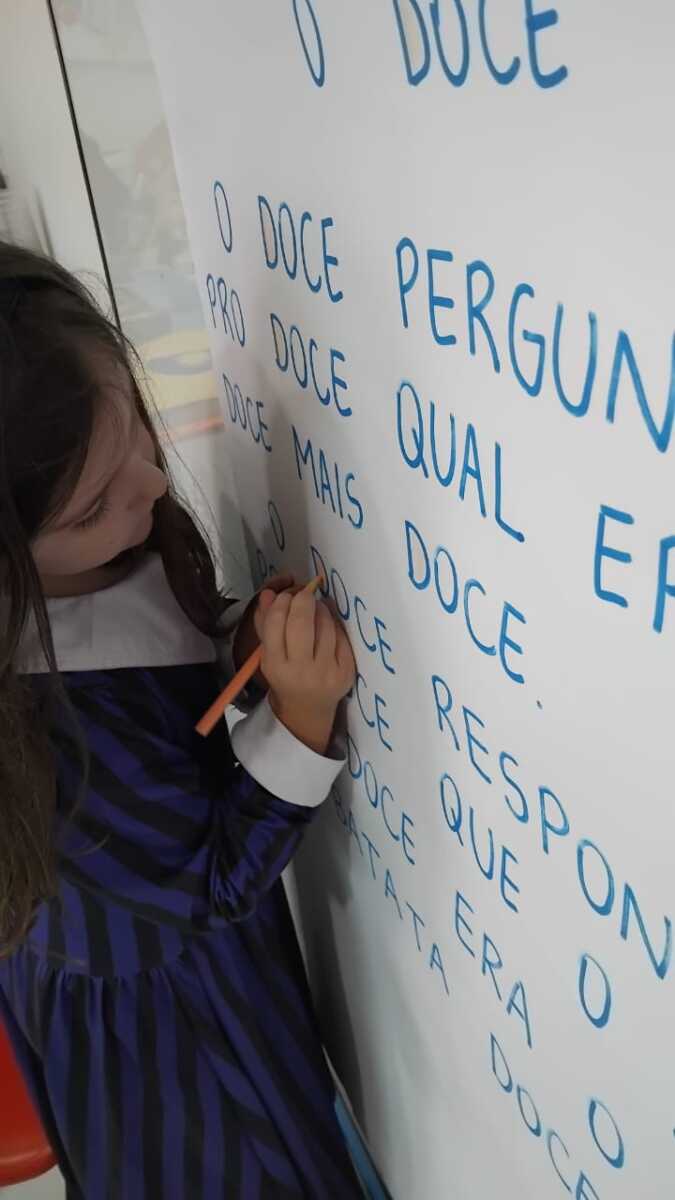 O DOCE
O DOCE PERGUN
PRO DOCE QUAL ER
DOCE MAIS DOCE.
O DOCE RESPON
CE QUE O
DOCE ERA O
BATATA DOCE